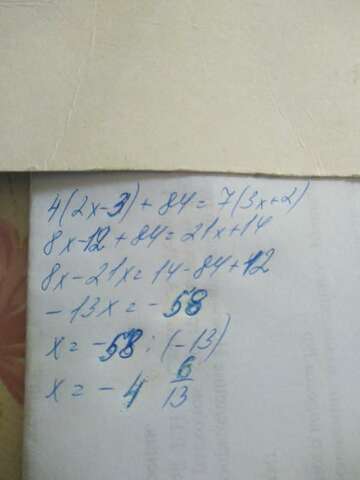 4(2x-3)+84=7(3x+2)
8x-12+84=21x+14
8x-21x=14-84+12
-13x=-58
x=-58:(-13)
x=-4 6/13